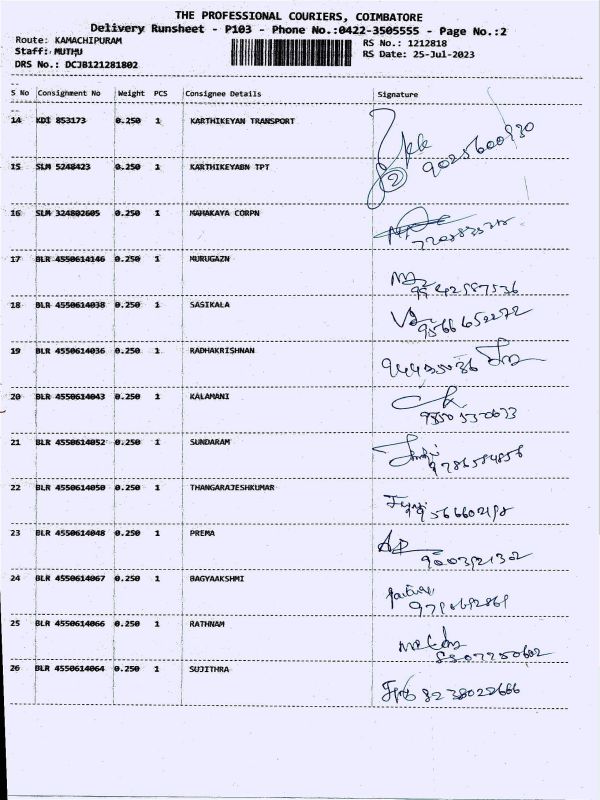 THE PROFESSIONAL COURIERS, COIMBATORE
Delivery Runsheet - P103 - Phone No.:0422-3505555 - Page No.:2
Route: KAMACHIPURAM
RS No.: 1212818
Staff: MUTHU
RS Date: 25-Jul-2023
DRS No.: DCJB121281802
S No Consignment No Weight PCS Consignee Details Signature
14 KDI 853173 0.250 1 KARTHIKEYAN TRANSPORT
9025600930
15 SLM 5248423 0.250 1 KARTHIKEYABN TPT
16 SLM 324802605 0.250 1 MAHAKAYA CORPN
17 BLR 4550614146 0.250 1 MURUGAZN
18 BLR 4550614038 0.250 1 SASIKALA
9566652272
19 BLR 4550614036 0.250 1 RADHAKRISHNAN
20 BLR 4550614043 0.250 1 KALAMANI
21 BLR 4550614052 0.250 1 SUNDARAM
9786584856
22 BLR 4550614050 0.250 1 THANGARAJESHKUMAR
23 BLR 4550614048 0.250 1 PREMA
24 BLR 4550614067 0.250 1 BAGYAAKSHMI
25 BLR 4550614066 0.250 1 RATHNAM
26 BLR 4550614064 0.250 1 SUJITHRA
8238022666